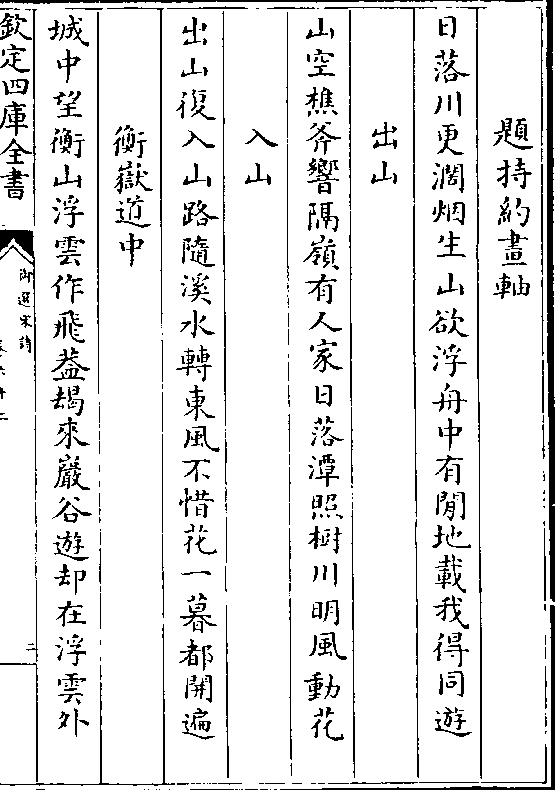 題持約畫軸
日落川更濶烟生山欲浮舟中有閒地載我得同遊
出山
山空樵斧響隔嶺有人家日落潭照樹川明風動花
入山
出山復入山路隨溪水轉東風不惜花一暮都開遍
衡嶽道中
城中望衡山浮雲作飛葢朅來巖谷遊却在浮雲外
欽定四庫全書
御選宋詩
二